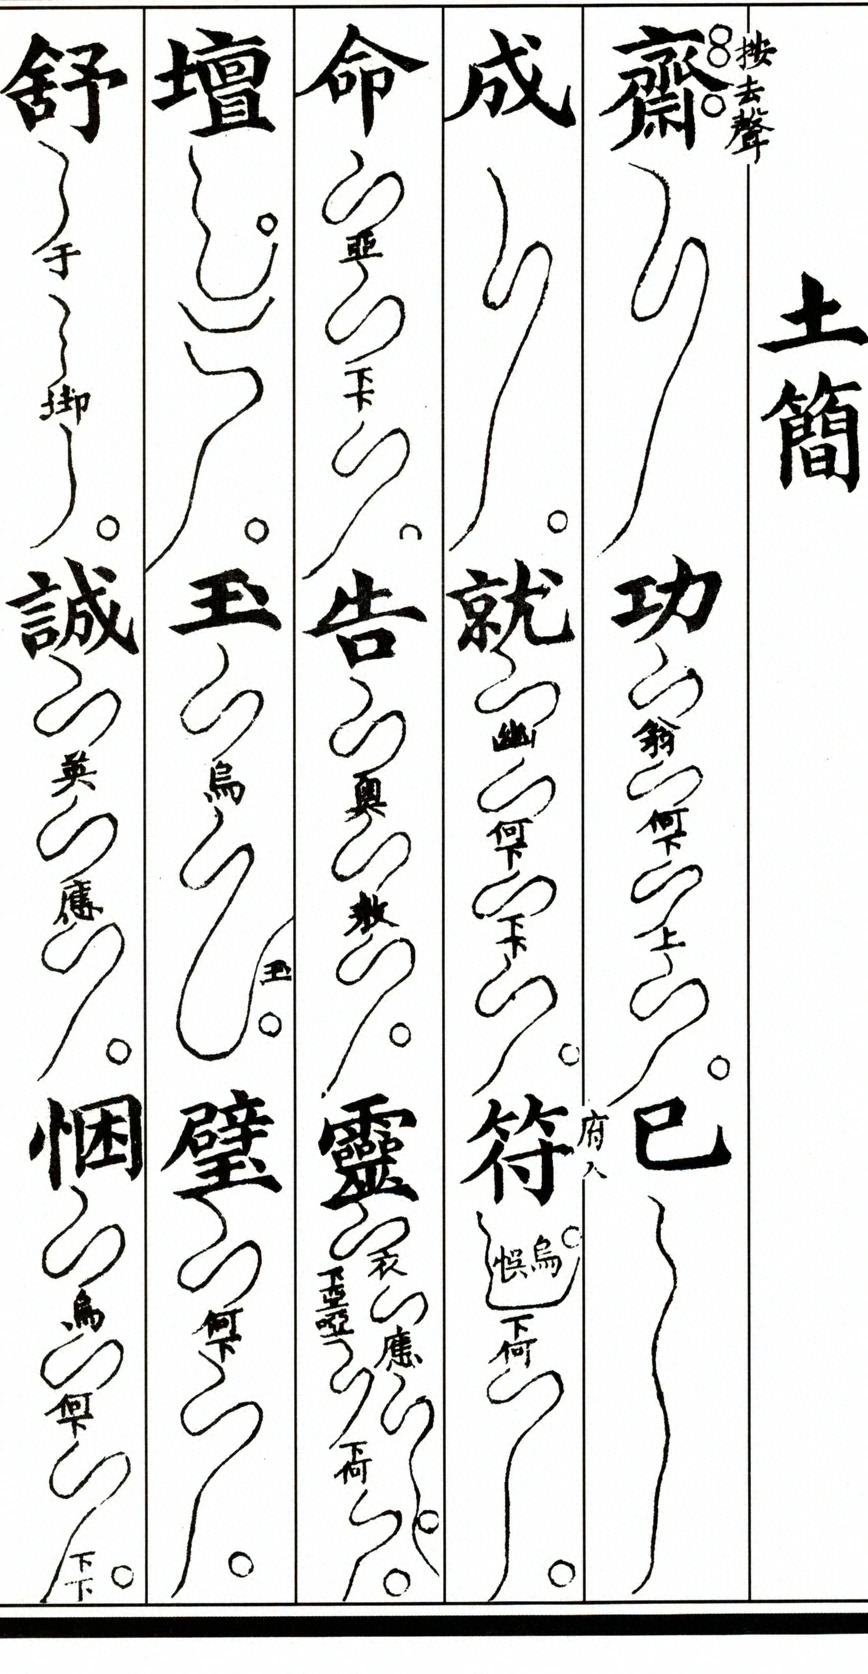 土簡
按去聲
齋功翁何下上已
成就幽何下下下符府入烏悞下何
命亞下下告奧敖靈衣應下亞啞下何
壇玉烏玉璧何下
舒于御誠英應悃烏何下下下